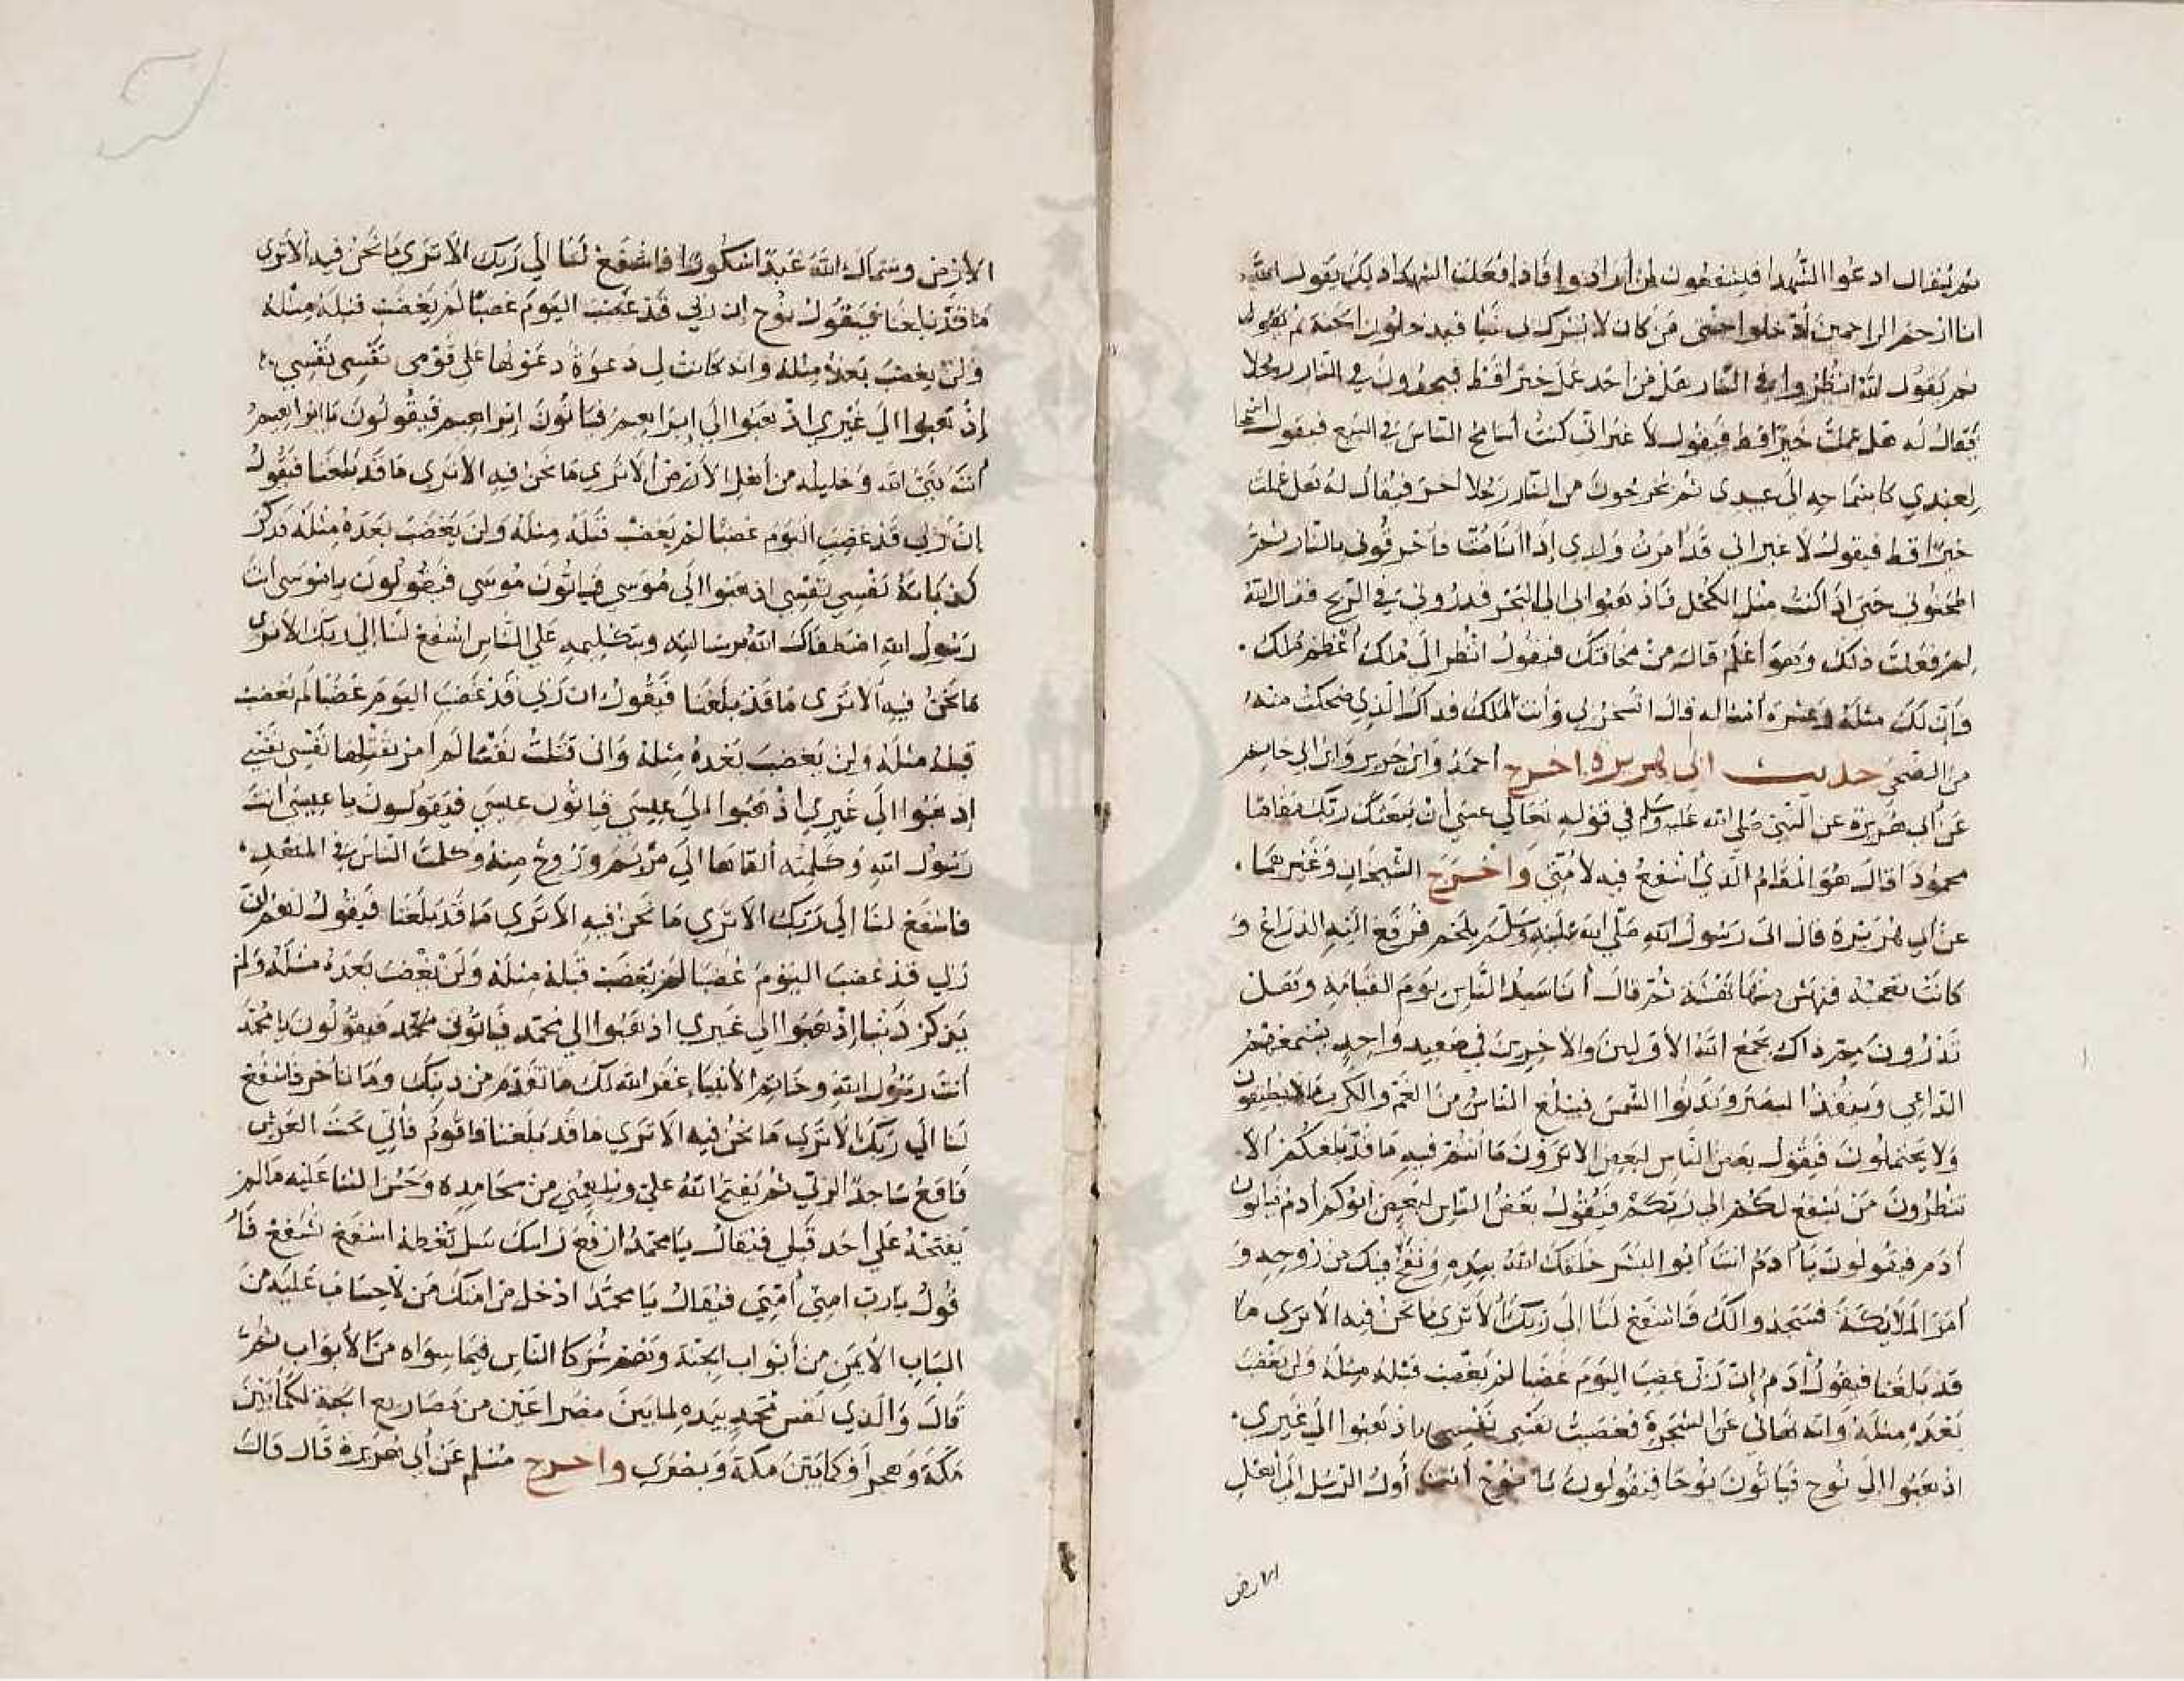 ثم يقال ادعوا الشهدا فيشفعون لمن ارادوا فاذا فعلت الشهدا ذلك يقول الله
انا ارحم الراحمين ادخلوا جنتي من كان لا يشرك بي شيا فيدخلون الجنة ثم يقول
ثم يقول الله انظروا في النار هل من احد عمل خيرا قط فيجدون في النار رجلا
فيقال له هل عملت خيرا قط فيقول لا غير اني كنت اسامح الناس في البيع فيقول اسمحوا
لعبدي كاسماحه الى عبيدي ثم يخرجون من النار رجلا اخر فيقال له هل عملت
خيرا قط فيقول لا غير اني قد امرت ولدي اذا انا مت فاحرقوني بالنار ثم
اطحنوني حتى اذا كنت مثل الكحل فاذهبوا بي الى البحر فذروني في الريح فقال الله
لم فعلت ذلك وهو اعلم قال من مخافتك فيقول انظر الى ملك اعظم ملك .
فان لك مثله وعشرة امثاله فيقول اتسخر بي وانت الملك فذاك الذي ضحكت منه
من الضحى حديث ابي هريرة اخرج احمد وابن جرير وابن ابي حاتم
عن ابي هريرة عن النبي صلى الله عليه وسلم في قوله تعالى عسى ان يبعثك ربك مقاما
محمودا قال هو المقام الذي اشفع فيه لامتي واخرج الشيخان وغيرهما .
عن ابي هريرة قال اتى رسول الله صلى الله عليه وسلم بلحم فرفع اليه الذراع و
كانت تعجبه فنهش منها نهشة ثم قال أنا سيد الناس يوم القيامة وهل
تدرون مم ذاك يجمع الله الأولين والاخرين في صعيد واحد يسمعهم
الداعي وينفذ البصر وتدنوا الشمس فيبلغ الناس من الغم والكرب ما لا يطيقون
ولا يحتملون فيقول بعض الناس لبعض الا ترون ما انتم فيه ما قد بلغكم ألا
تنظرون من يشفع لكم الى ربكم فيقول بعض الناس لبعض ابوكم ادم فياتون
أدم فيقولون يا أدم انت أبوا البشر خلقك الله بيده ونفخ فيك من روحه و
أمر الملايكة فسجدوا لك فاشفع لنا الى ربك ألا ترى ما نحن فيه الا ترى ما
قد بلغنا فيقول أدم إن ربي غضب اليوم غضبا لم يغضب قبله مثله ولن يغضب
بعده مثله وانه نهاني عن الشجرة فعصيت نفسي نفسي اذهبوا الى غيري .
اذهبوا الى نوح فياتون نوحا فيقولون يا نوح انت أول الرسل الى أهل
الارض
الأرض وسماك الله عبدا شكورا فاشفع لنا الى ربك الا ترى ما نحن فيه ألا ترى
ما قد بلغنا فيقول نوح إن ربي قد غضب اليوم غضبا لم يغضب قبله مثله
ولن يغضب بعده مثله وانه كانت لي دعوة دعوتها على قومي نفسي نفسي
إذهبوا الى غيري اذهبوا الى إبراهيم فياتون إبراهيم فيقولون يا ابراهيم
أنت نبي الله وخليله من أهل الأرض ألا ترى ما نحن فيه الا ترى ما قد بلغنا فيقول
إن ربي قد غضب اليوم غضبا لم يغضب قبله مثله ولن يغضب بعده مثله وذكر
كذباته نفسي نفسي اذهبوا الى موسى فياتون موسى فيقولون يا موسى أنت
رسول الله اصطفاك الله برسالته وبتكليمه على الناس اشفع لنا إلى ربك الا ترى
ما نحن فيه ألا ترى ما قد بلغنا فيقول ان ربي قد غضب اليوم غضبا لم يغضب
قبله مثله ولن يغضب بعده مثله واني قتلت نفسا لم أمر بقتلها نفسي نفسي
إذهبوا الى غيري اذهبوا الى عيسى فياتون عيسى فيقولون يا عيسى أنت
رسول الله وكلمته ألقاها الى مريم وروح منه وكلمت الناس في المهد
فاشفع لنا إلى ربك الا ترى ما نحن فيه الا ترى ما قد بلغنا فيقول لهم ان
ربي قد غضب اليوم غضبا لم يغضب قبله مثله ولن يغضب بعده مثله ولم
يذكر ذنبا إذهبوا الى غيري اذهبوا الى محمد فياتوني محمد فيقولون يا محمد
أنت رسول الله وخاتم الأنبياء غفر الله لك ما تقدم من ذنبك وما تأخر فاشفع
لنا الى ربك ألا ترى ما نحن فيه الا ترى ما قد بلغنا فاقوم فأتي تحت العرش
فاقع ساجدا لربي ثم يفتح الله علي ويلهمني من محامده وحسن الثنا عليه ما لم
يفتحه على أحد قبلي فيقال يا محمد ارفع راسك سل تعطه اشفع تشفع فأ
قول يارب امتي أمتي فيقال يا محمد ادخل من امتك من لا حساب عليه من
الباب الأيمن من أبواب الجنة وهم شركا الناس فيما سواه من الأبواب ثم
قال والذي نفس محمد بيده لما بين مصراعين من مصاريع الجنة لكما بين
مكة وهجر أو كما بين مكة وبصرى واخرج مسلم عن أبي هريرة قال قال